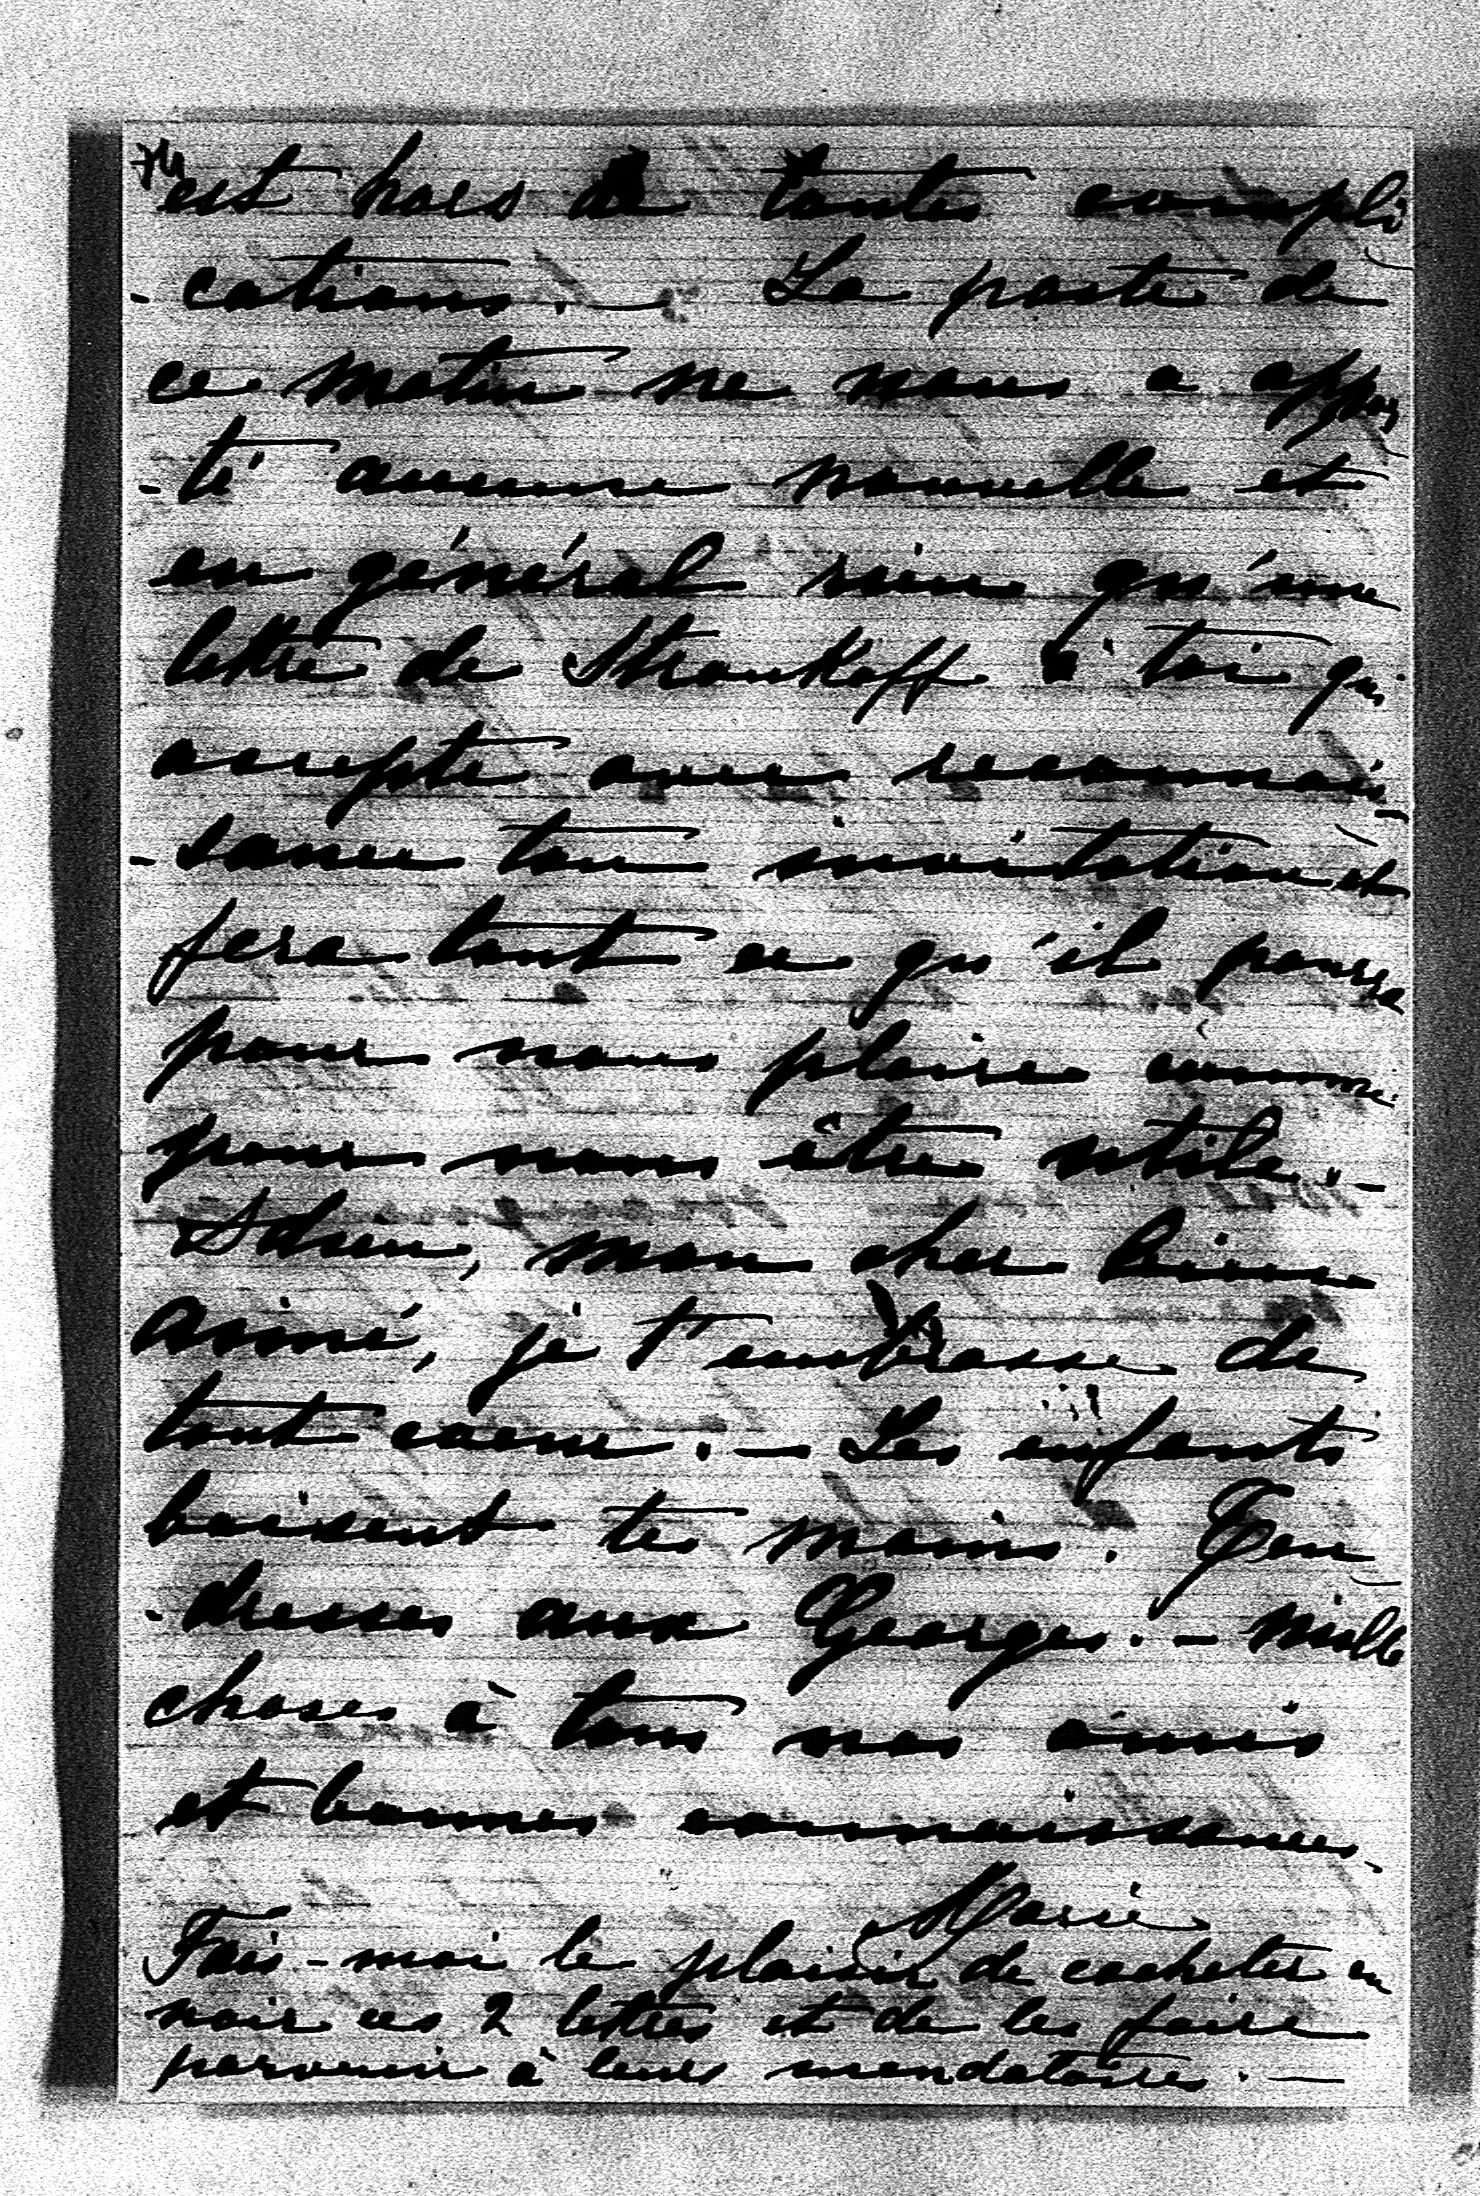 est hors de toutes compli
- cations. — La poste de
ce matin ne nous a appor
- té aucune nouvelle et
en général rien qu'une
lettre de Stroukoff à toi qui
accepte avec reconnais
- sance ton invitation et
fera tout ce qu'il pourra
pour nous plaire comme
pour nous être utile. —
Adieu, mon cher bien
aimé, je t'embrasse de
tout coeur. — Les enfants
baisent tes mains. Ten
- dresses aux Georges. — Mille
choses à tous nos amis
et bonnes connaissances.
Marie
Fais-moi le plaisir de cacheter en
noir ces 2 lettres et de les faire
parvenir à leurs mandataires. —